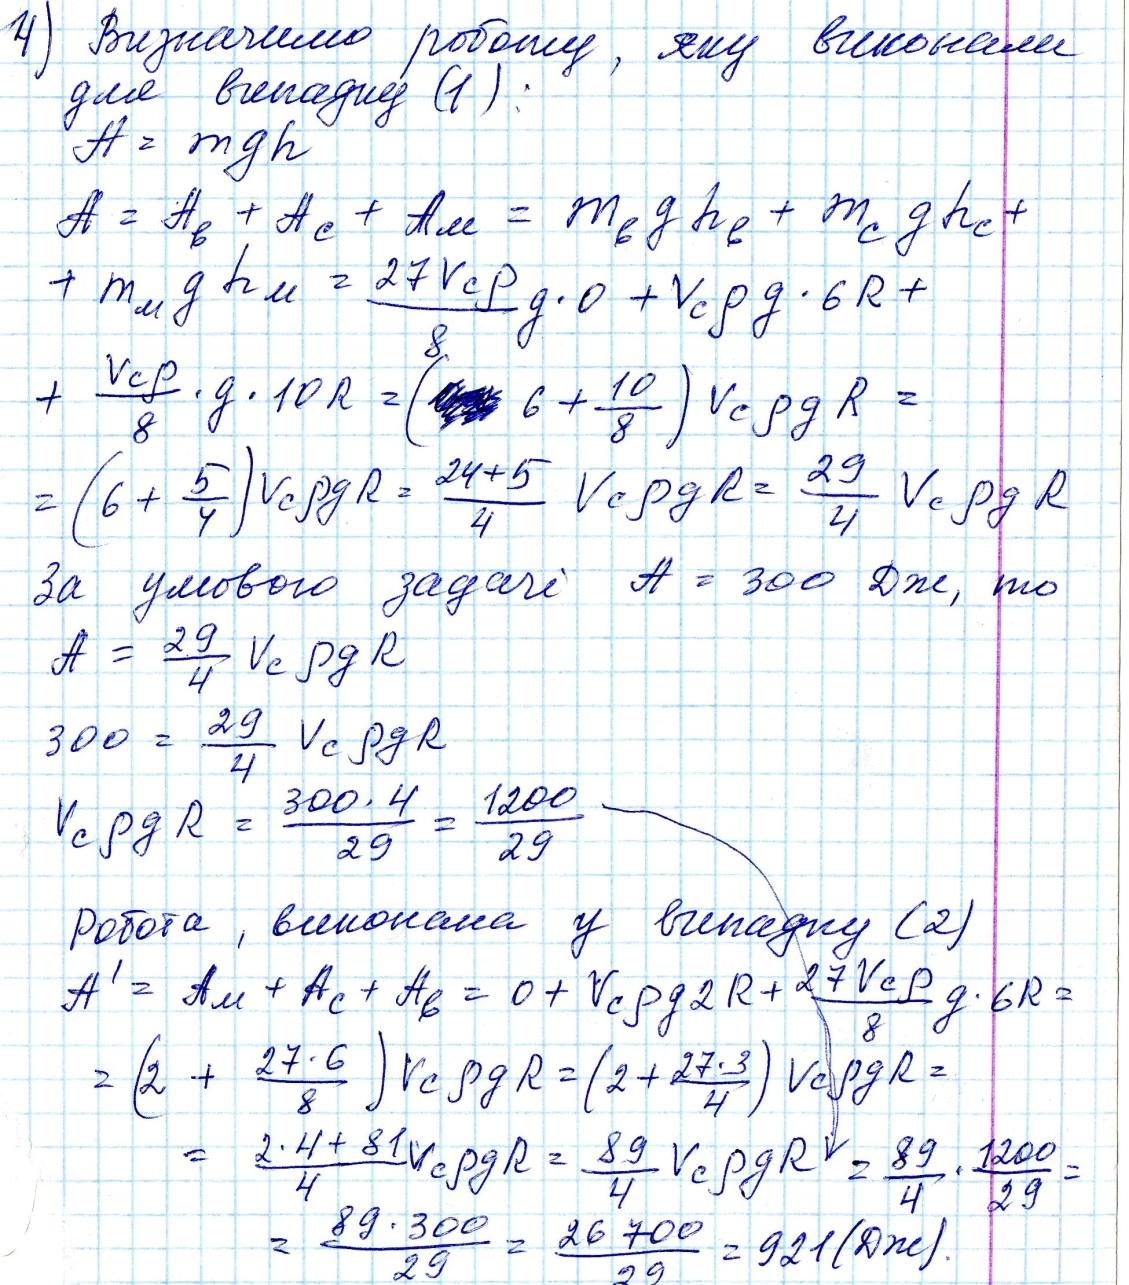 4) Визначимо роботу, яку виконали
для випадку (1):
A = mgh
A = Aв + Aс + Aм = mв g hв + mс g hс +
+ mм g hм = 27Vсρ/8 g·0 + Vсρg·6R +
+ Vсρ/8 · g · 10R = ( 6 + 10/8 ) VсρgR =
= (6 + 5/4) VсρgR = 24+5/4 VсρgR = 29/4 VсρgR
За умовою задачі A = 300 Дж, то
A = 29/4 VсρgR
300 = 29/4 VсρgR
VсρgR = 300·4/29 = 1200/29
Робота, виконана у випадку (2)
A' = Aм + Aс + Aв = 0 + Vсρg2R + 27Vсρ/8 g·6R =
= (2 + 27·6/8) VсρgR = (2 + 27·3/4) VсρgR =
= 2·4+81/4 VсρgR = 89/4 VсρgR = 89/4 · 1200/29 =
= 89·300/29 = 26 700/29 = 921 (Дж).